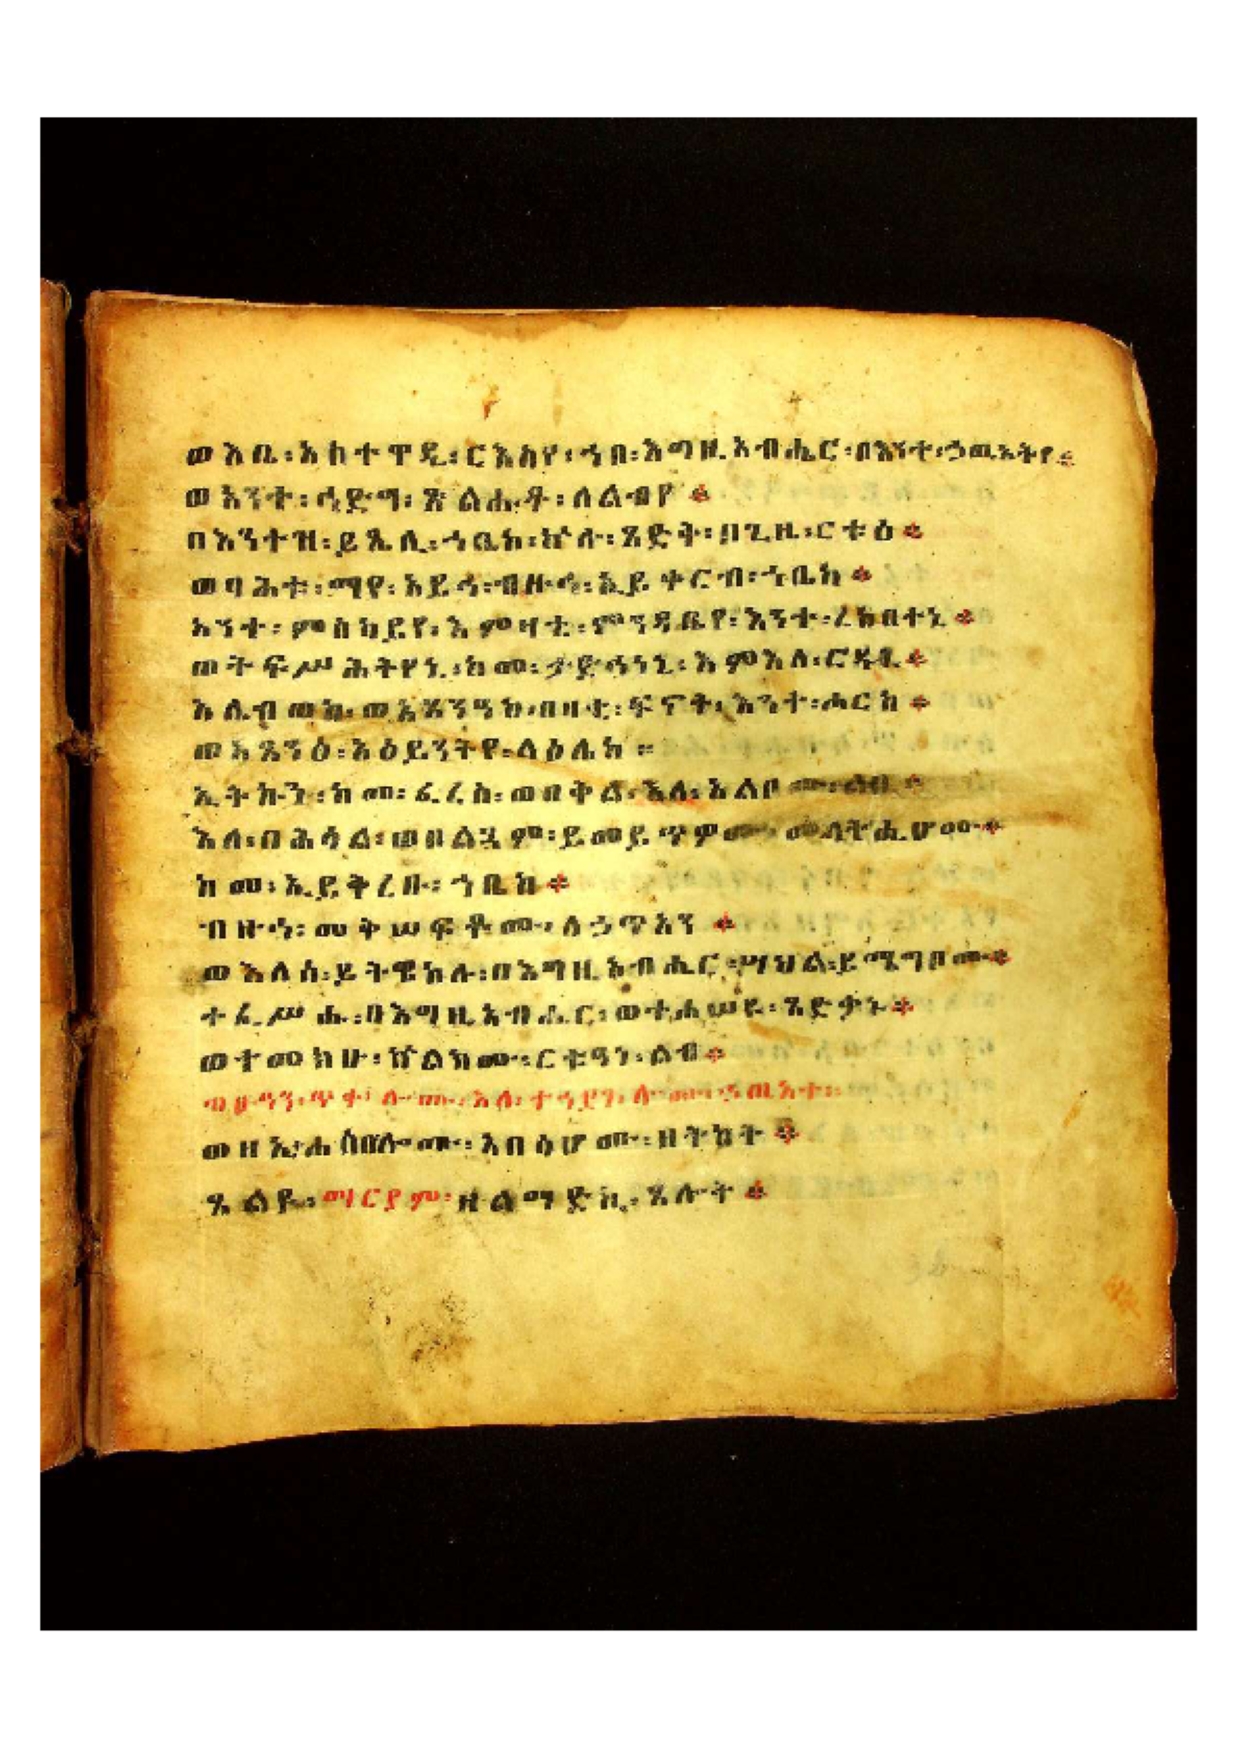 ወእቤ፡እከተዋዲ፡ርእስየ፡ኀበ፡እግዚአብሔር፡በእንተ፡ኃጢአትየ።
ወእንተ፡ኀድግ፡ጽልሑቶ፡ለልብየ።
በእንተዝ፡ይጼሊ፡ኀቤከ፡ኵሉ፡ጻድቅ፡በጊዜ፡ርቱዕ።
ወባሕቱ፡ማየ፡አይኅ፡ብዙኅ፡ኢይቀርብ፡ኀቤከ።
አንተ፡ምስካይየ፡እምዛቲ፡ምንዳቤየ፡እንተ፡ረከበተኒ።
ወትፍሥሕትየኒ፡ከመ፡ታድኅነኒ፡እምእለ፡ርዱኒ።
እሌብወከ፡ወእጼንዓከ፡በዛቲ፡ፍኖት፡እንተ፡ሖርከ።
ወአጸንዕ፡አዕይንትየ፡ላዕሌከ።
ኢትኩን፡ከመ፡ፈረስ፡ወበቅል፡እለ፡አልቦሙ፡ልበ።
እለ፡በሕሳል፡ወበልጓም፡ይመይጥዎሙ፡መላትሒሆሙ።
ከመ፡ኢይቅረቡ፡ኀቤከ።
ብዙኅ፡መቅሠፍቶሙ፡ለኃጥአን።
ወእለሰ፡ይትዌከሉ፡በእግዚአብሔር፡ሣህል፡ይሜግቦሙ።
ተፈሥሑ፡በእግዚአብሔር፡ወተሐሠዩ፡ጻድቃኑ።
ወተመክሁ፡ኵልክሙ፡ርቱዓነ፡ልብ።
ብፁዓን፡እለ፡ተኀድገ፡ሎሙ፡ኃጢአቶሙ።
ጸልዩ፡ማርያም፡ዘልማድኪ፡ጸሎት።